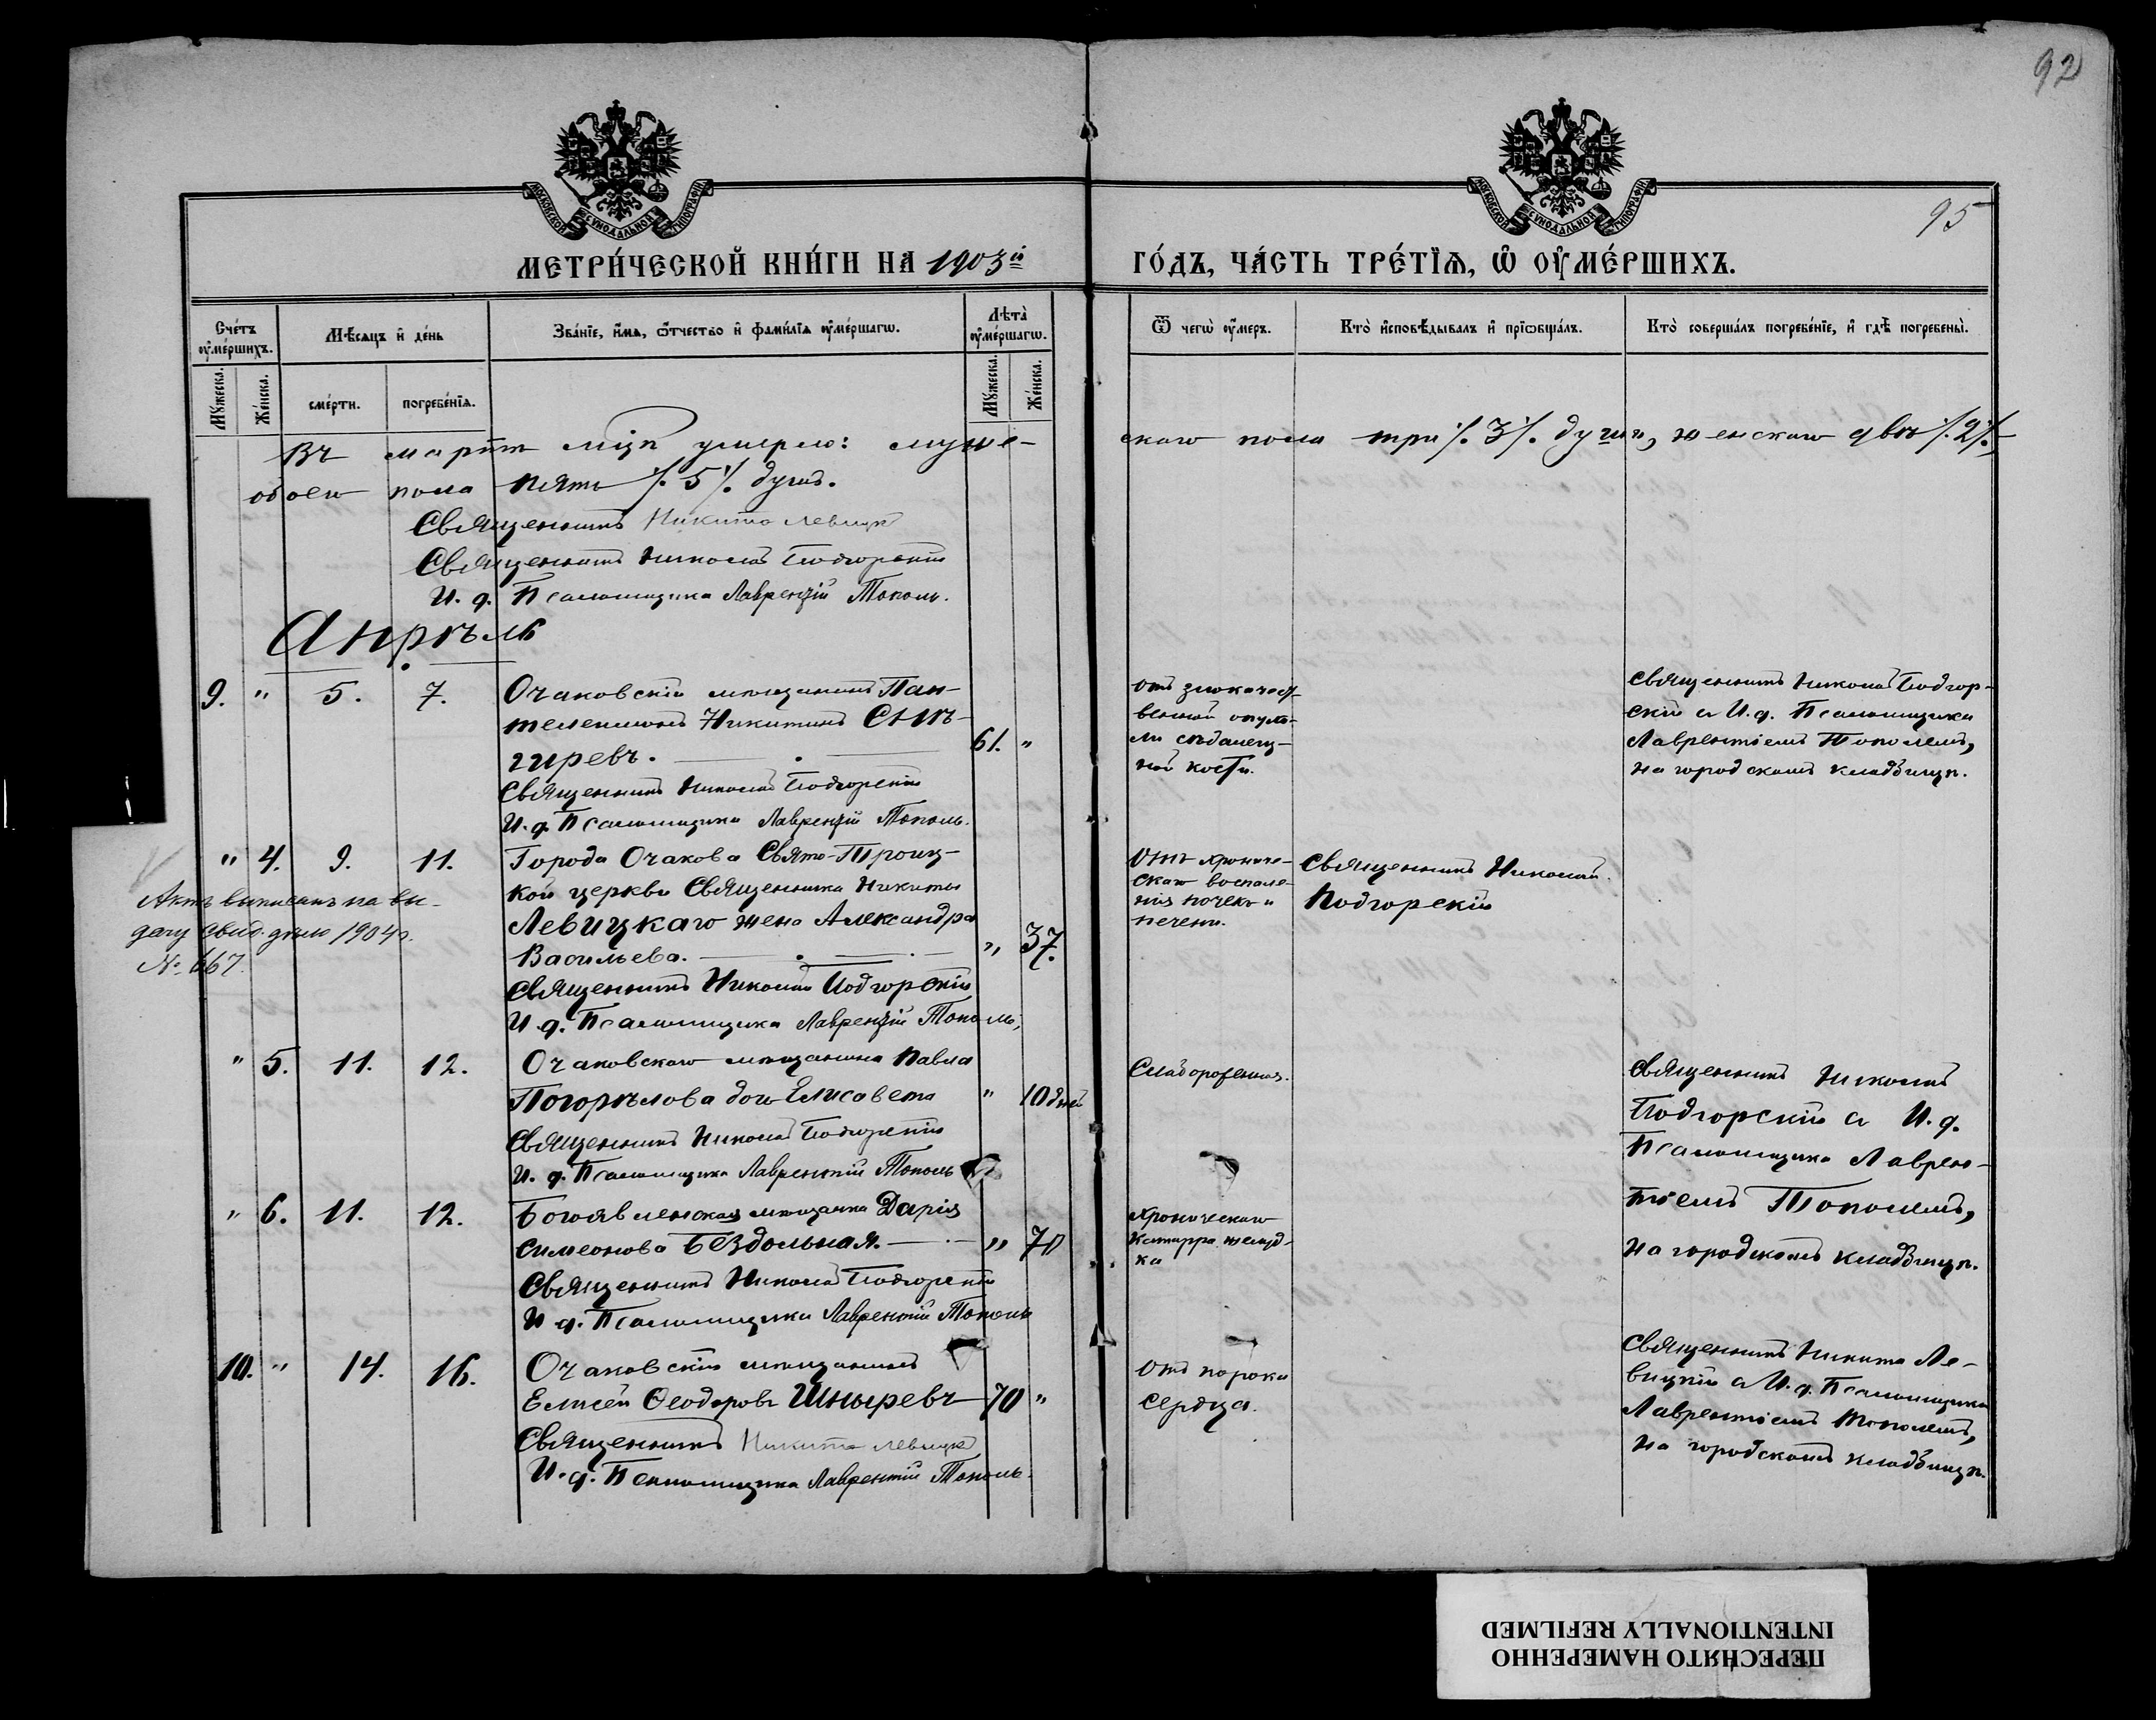 92
95
МОСКОВСКОЙ СѴНОДАЛЬНОЙ ТИПОГРАФІИ
МОСКОВСКОЙ СѴНОДАЛЬНОЙ ТИПОГРАФІИ
МЕТРИ́ЧЕСКОЙ КНИ́ГИ НА 1903й ГО́ДЪ, ЧА́СТЬ ТРЕ́ТІѦ, Ѡ ОУМЕ́РШИХЪ.
Сче́тъ оумершихъ.
Мѣсяцъ и де́нь
Зва́ніе, и́мя, ѻтчество и фами́лія оумершагѡ.
Лѣта̀ оумершагѡ.
Ѿ чегѡ̀ оумеръ.
Кто̀ исповѣ́дывалъ и пріѡбща́лъ.
Кто̀ соверша́лъ погребе́ніе, и гдѣ̀ погребены̀.
Мужеска.
Же́нска.
сме́рти.
погребе́нїя.
Мужеска.
Же́нска.
Въ мартѣ м-цѣ умерло: муже-
скаго пола три /.3/. души, женскаго двѣ /.2/.
обоего пола пять /.5/. душъ.
Священникъ Никита Левицк
Священникъ Николай Подгорскій
И. д. Псаломщика Лаврентій Тополь.
Апрѣль
9. " 5. 7. Очаковскій мѣщанинъ Пан-
телеимонъ Никитинъ Снѣ-
гиревъ. 61. "
Священникъ Николай Подгорскій
И. д. Псаломщика Лаврентій Тополь.
отъ злокачест-
венной опухо-
ли сѣдалищ-
ной кости.
Священникъ Николай Подгор-
скій съ И. д. Псаломщика
Лаврентіемъ Тополемъ,
на городскомъ кладбищѣ.
" 4. 9. 11. Города Очакова Свято-Троиц-
кой церкви Священника Никиты
Левицкаго жена Александра
Васильева. " 37.
Священникъ Николай Подгорскій
И. д. Псаломщика Лаврентій Тополь,
Актъ выписанъ на вы-
дачу свид.
1904 г.
№ 667.
Отъ хрониче-
скаго воспале-
нія почекъ и
печени.
Священникъ Николай
Подгорскій
" 5. 11. 12. Очаковскаго мѣщанина Павла
Погорѣлова дочь Елисавета " 10 дней
Священникъ Николай Подгорскій
И. д. Псаломщика Лаврентій Тополь
Слаборожденія.
Священникъ Николай
Подгорскій съ И. д.
Псаломщика Лаврен-
тіемъ Тополемъ,
на городскомъ кладбищѣ.
" 6. 11. 12. Богоявленская мѣщанка Дарія
Симеонова Бездольная. " 70
Священникъ Николай Подгорскій
И. д. Псаломщика Лаврентій Тополь
Хроническаго
катарра желуд-
ка
10. " 14. 16. Очаковскій мѣщанинъ
Елисей Ѳеодоровъ Шныревъ 70 "
Священникъ Никита Левицк
И. д. Псаломщика Лаврентій Тополь.
Отъ порока
сердца.
Священникъ Никита Ле-
вицкій съ И. д. Псаломщика
Лаврентіемъ Тополемъ,
на городскомъ кладбищѣ.
ПЕРЕСНЯТО НАМЕРЕННО
INTENTIONALLY REFILMED